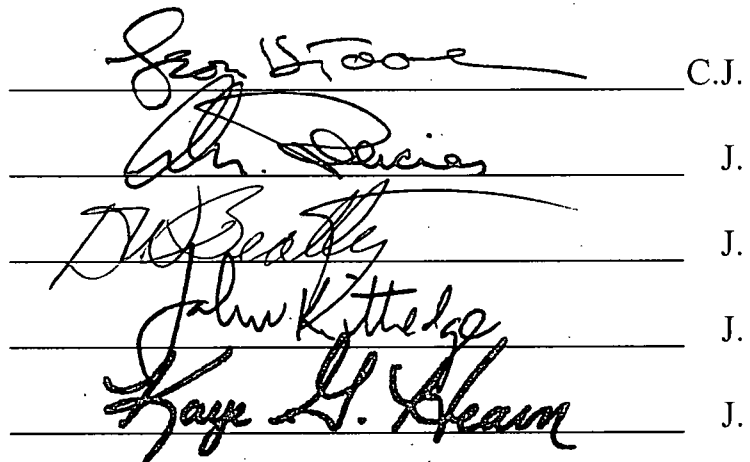 Jean H. Toal C.J.
J.
D W Beatty J.
John Kittredge J.
Kaye G. Hearn J.